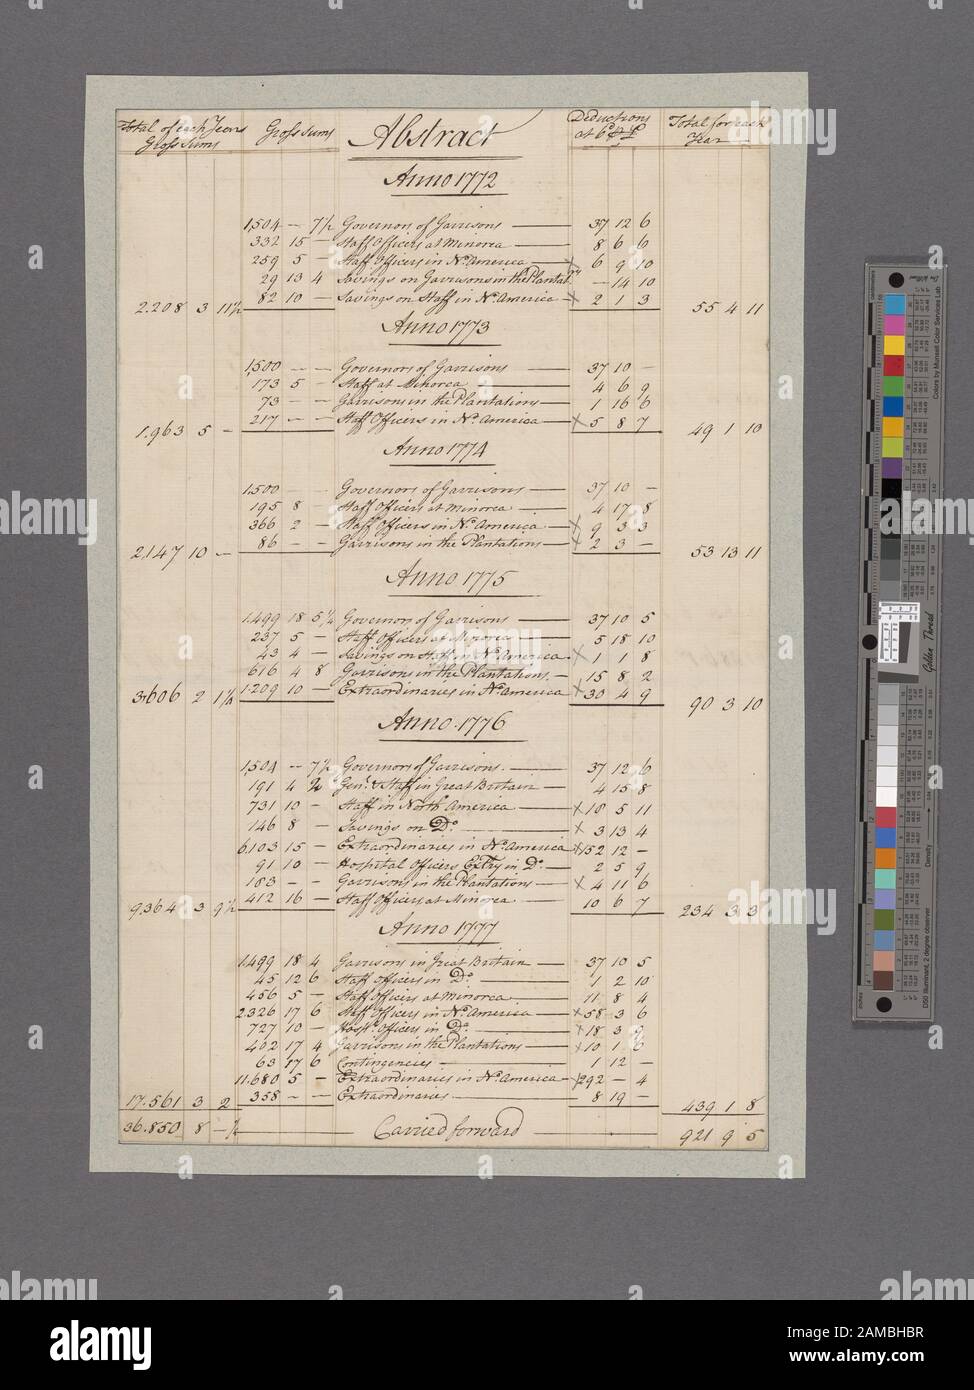 Total of each Years Gross Sums Gross Sums Abstract Deductions at 6d. P £ Total for each Year
Anno 1772
1,504 — 7½ Governors of Garrisons — 37 12 6
332 15 — Staff Officers at Minorca — 8 6 6
259 5 — Staff Officers in No. America — x 6 9 10
29 13 4 Savings on Garrisons in the Plantat.ns — 14 10
82 10 — Savings on Staff in No. America — x 2 1 3
2.208 3 11½ 55 4 11
Anno 1773
1,500 — — Governors of Garrisons — 37 10 —
173 5 — Staff at Minorca — 4 6 9
73 — — Garrisons in the Plantations — 1 16 6
217 — — Staff Officers in No. America — x 5 8 7
1.963 5 — 49 1 10
Anno 1774
1.500 — — Governors of Garrisons — 37 10 —
195 8 — Staff Officers at Minorca — 4 17 8
366 2 — Staff Officers in No. America — x 9 3 3
86 — — Garrisons in the Plantations — x 2 3 —
2,147 10 — 53 13 11
Anno 1775
1.499 18 5½ Governors of Garrisons — 37 10 5
237 5 — Staff Officers at Minorca — 5 18 10
43 4 — Savings on Staff in No. America — x 1 1 8
616 4 8 Garrisons in the Plantations — 15 8 2
1.209 10 — Extraordinaries in No. America x 30 4 9
3,606 2 1½ 90 3 10
Anno 1776
1,504 — 7½ Governors of Garrisons — 37 12 6
191 4 2 Genl. & Staff in Great Britain — 4 15 8
731 10 — Staff in North America — x 18 5 11
146 8 — Savings on Do. — x 3 13 4
6,103 15 — Extraordinaries in No. America x 152 12 —
91 10 — Hospital Officers Extry in Do. — 2 5 9
183 — — Garrisons in the Plantations — x 4 11 6
412 16 — Staff Officers at Minorca — 10 6 7
9364 3 9½ 234 3 3
Anno 1777
1.499 18 4 Garrisons in Great Britain — 37 10 5
45 12 6 Staff Officers in Do. — 1 2 10
456 5 — Staff Officers at Minorca — 11 8 4
2.326 17 6 Staff Officers in No. America — x 58 3 6
727 10 — Hospl. Officers in Do. — x 18 3 9
402 17 4 Garrisons in the Plantations — x 10 1 6
63 17 6 Contingencies — 1 12 —
11.680 5 — Extraordinaries in No. America — x 292 — 4
358 — — Extraordinaries — 8 19 —
17.561 3 2 439 1 8
36.850 8 — ½ — Carried forward — 921 9 5
Colors by Munsell Color Services Lab
Golden Thread
Density →
D50 Illuminant, 2 degree observer
inches
alamy
alamy
Image ID: 2AMBHBR
www.alamy.com